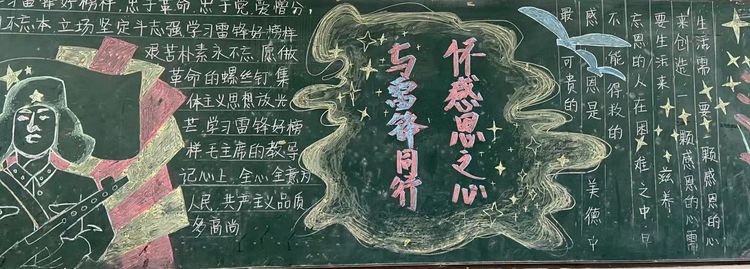 习雷锋好榜样 忠于革命 忠于党 爱憎分
不忘本 立场坚定斗志强 学习雷锋好榜样
艰苦朴素永不忘 愿做
革命的螺丝钉 集
体主义思想放光
芒 学习雷锋好榜
样 毛主席的教导
记心上 全心全意为
人民 共产主义品质
多高尚
怀感恩之心
与雷锋同行
生活需要一颗感恩的心
来创造 一颗感恩的心需
要生活来滋养
忘恩的人在困难之中是
不能得救的
感恩是美德中
最可贵的